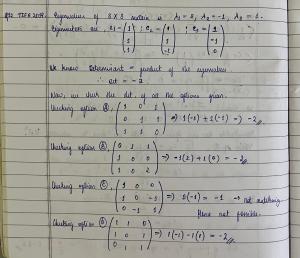 Eigenvalues of 3 X 3 matrix is λ₁ = 2, λ₂ = -1, λ₃ = 1.
Eigenvectors are e₁ = (1 1 1) ; e₂ = (1 1 -1) ; e₃ = (1 -1 0)
We know Determinant = product of the eigenvalues
∴ det = -2
Now, we check the det. of all the options given.
Checking option A, (1 0 1
0 1 1
1 1 0) => 1(-1) + 1(-1) => -2
Checking option B, (0 1 1
1 0 0
1 0 2) => -1(2) + 1(0) = -2
Checking option C, (1 0 0
1 0 -1
0 -1 1) => 1(-1) = -1 → not matching
Hence not possible.
Checking option D, (1 1 0
1 0 1
0 1 1) => 1(-1) -1(1) = -2